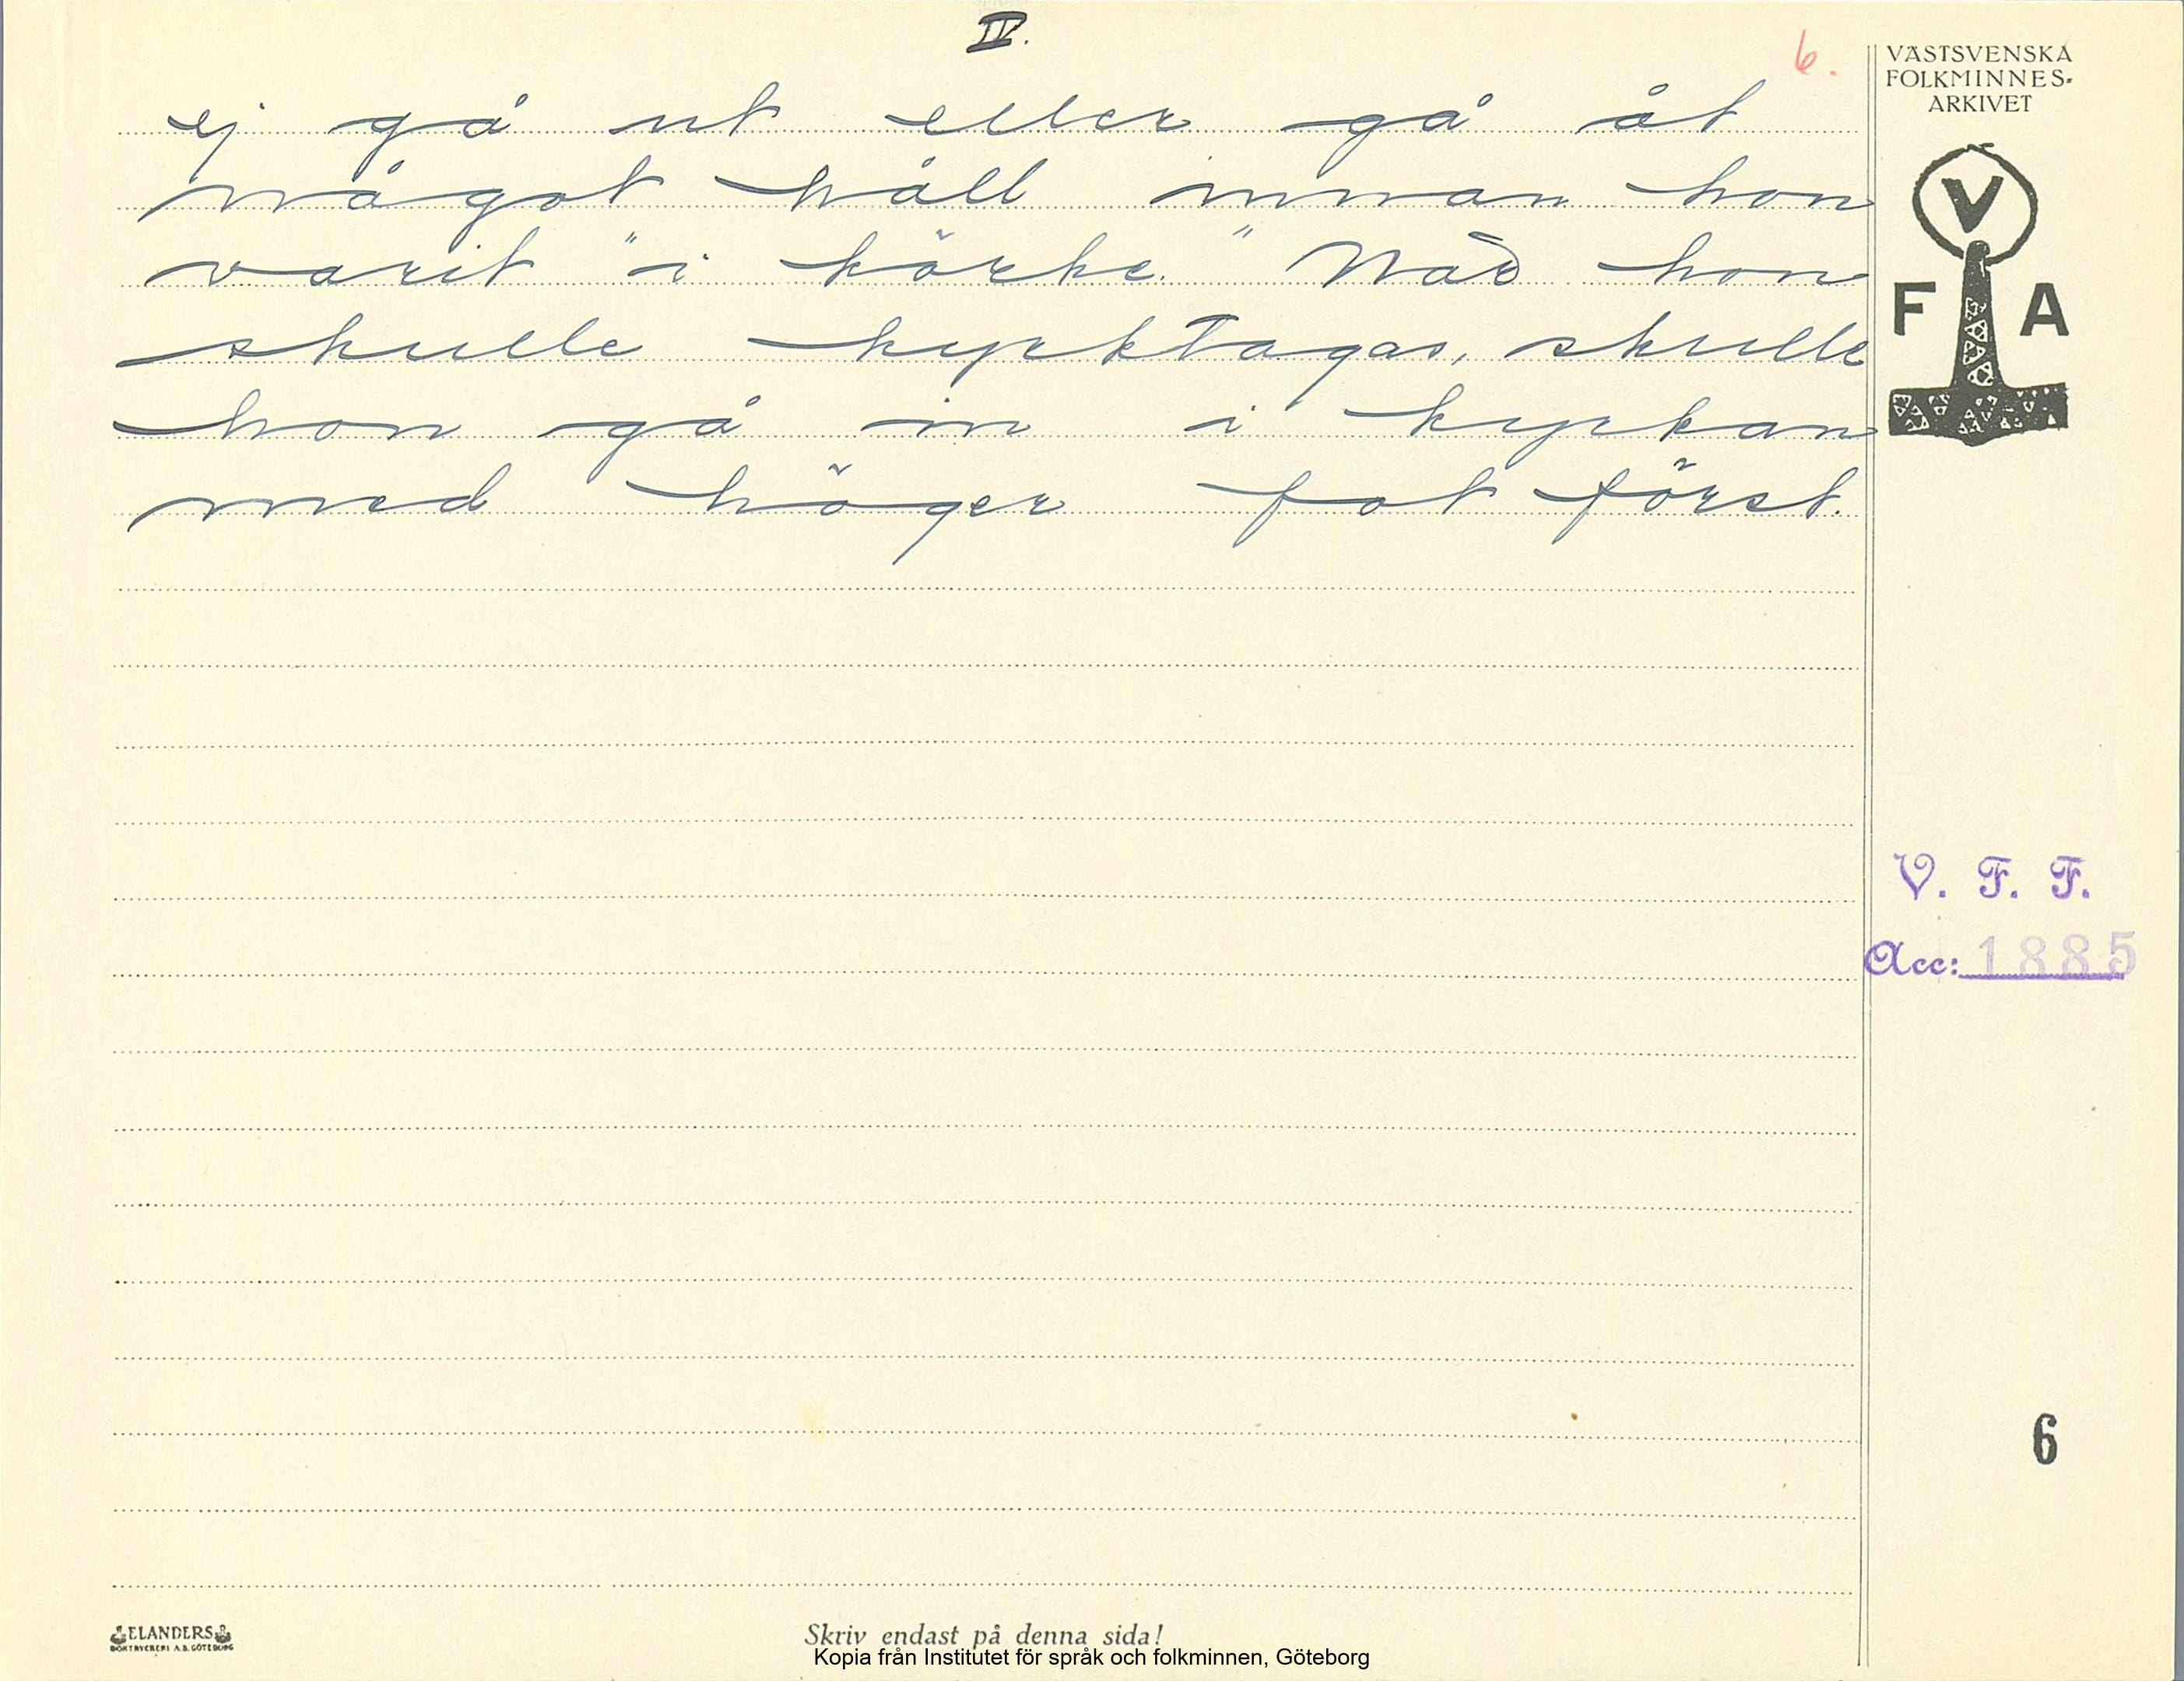 IV.
6.
VÄSTSVENSKA
FOLKMINNES-
ARKIVET
ej gå ut eller gå åt
något håll innan hon
varit "i körke." När hon
skulle kyrktagas, skulle
hon gå in i kyrkan
med höger fot först.
V
F A
V. F. F.
Acc: 1885
6
ELANDERS
BOKTRYCKERI A.B. GÖTEBORG
Skriv endast på denna sida!
Kopia från Institutet för språk och folkminnen, Göteborg